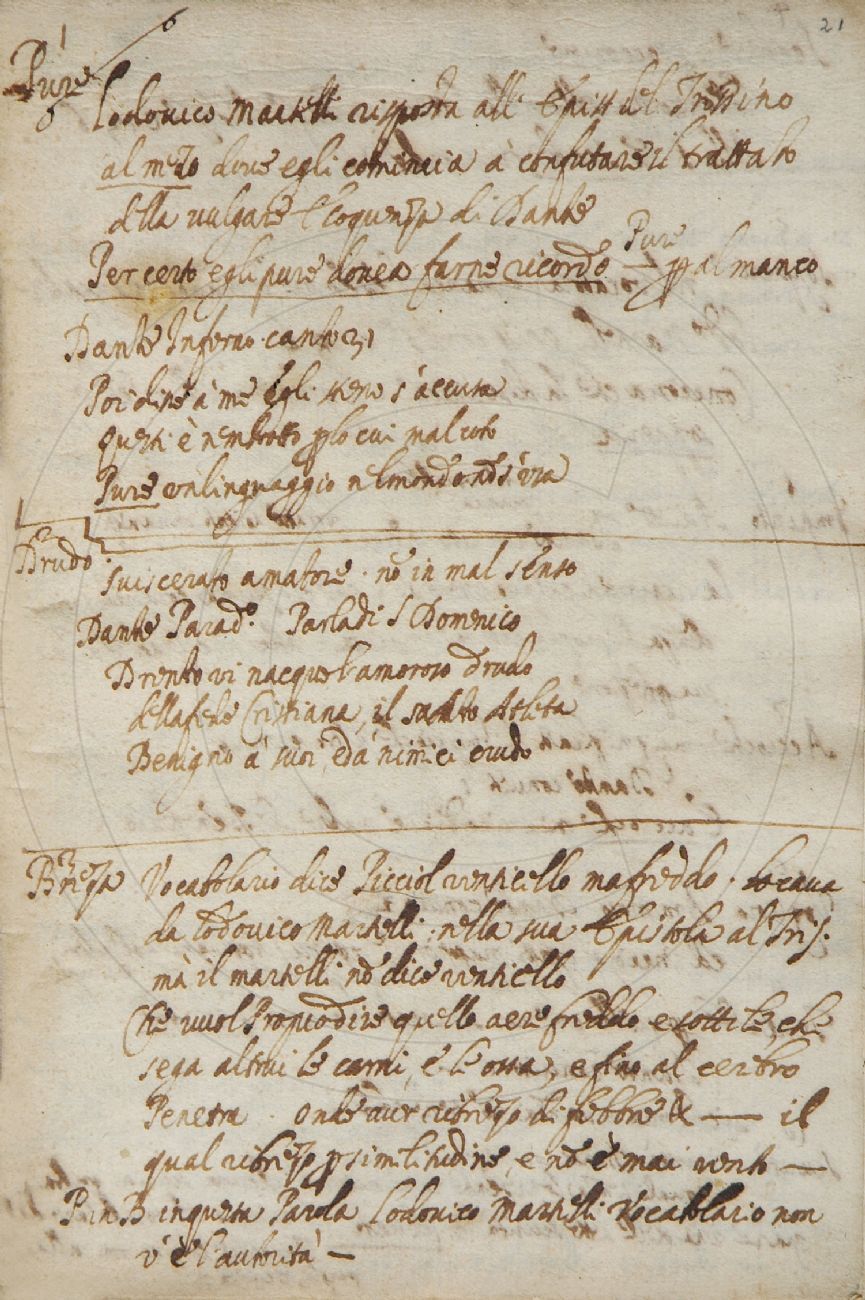 21
Pure
Lodovico Martelli risposta all' Epist del Trissino
al mezo dove egli comincia à confutare il trattato
della vulgare Eloquenza di Dante
Per certo egli pure dovea farne ricordo — Pure p al manco
Dante Inferno canto 31
Poi disse à me Egli stesso s'accusa
questi è nembrotto p lo cui mal coto
Pure un linguaggio nel mondo nõ s'usa
Drudo
suiscerato amatore . nõ in mal senso
Dante Parad.º Parla di S Domenico
Drento vi nacque l'amoroso drudo
della fede Cristiana, il santo Atleta
Benigno à suoi, ed à nimici crudo
Brezza Vocabolario dice Picciol venticello ma freddo . lo cava
da Lodovico Martelli nella sua Epistola al Tris.
mà il martelli nõ dice venticello
Che vuol Propio dire quello aere freddo e sottile, che
sega altrui le carni, è le ossa, e fino al cerebro
Penetra . Onde aver ribrezo di febbre & — il
qual ribrezo p similitudine, e nõ è mai vento —
P in B in questa Parola Lodovico Martelli Vocabolario non
v'è l'autorità —